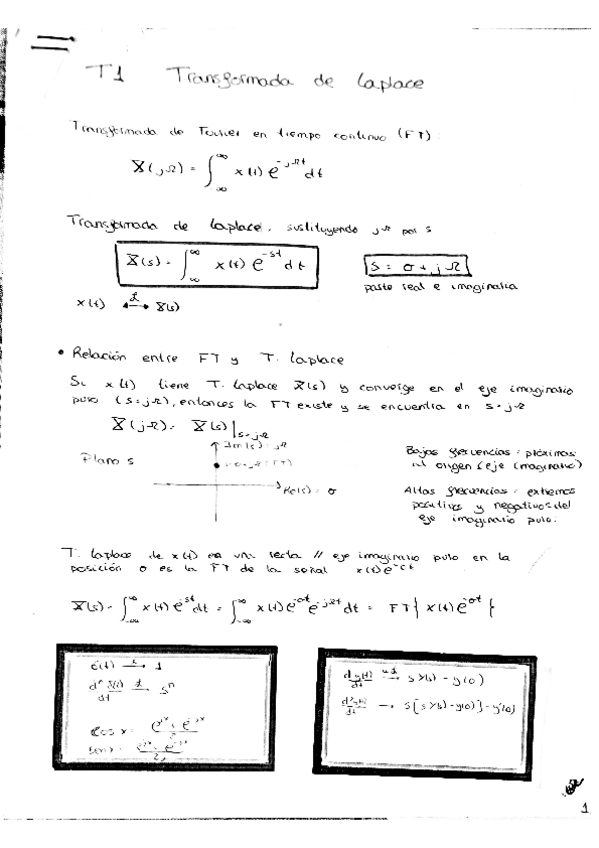 T1 Transformada de Laplace
Transformada de Fourier en tiempo continuo (FT):
X(jΩ) = ∫_∞^∞ x(t) e^{-jΩt} dt
Transformada de Laplace, sustituyendo jΩ por s
X(s) = ∫_∞^∞ x(t) e^{-st} dt
S = σ + jΩ
parte real e imaginaria
x(t) ↔ℒ X(s)
• Relación entre FT y T. Laplace
Si x(t) tiene T. Laplace X(s) y converge en el eje imaginario
puro (s=jΩ), entonces la FT existe y se encuentra en s=jΩ
X(jΩ) = X(s)|s=jΩ
Plano s
Im(s) = jΩ
(FT)
Re(s) = σ
Bajas frecuencias: próximas
al origen (eje imaginario)
Altas frecuencias: extremos
positivos y negativos del
eje imaginario puro.
T. Laplace de x(t) en una recta // eje imaginario puro en la
posición σ es la FT de la señal x(t)e^{-σt}
X(s) = ∫_{-∞}^∞ x(t) e^{-st} dt = ∫_{-∞}^∞ x(t) e^{-σt} e^{-jΩt} dt = FT{x(t) e^{-σt}}
δ(t) →ℒ 1
d^n δ(t)/dt →ℒ s^n
cos x = (e^{jx} + e^{-jx})/2
sen x = (e^{jx} - e^{-jx})/2j
dy(t)/dt →ℒ sY(s) - y(0)
d²y(t)/dt → s[sY(s) - y(0)] - y'(0)
1